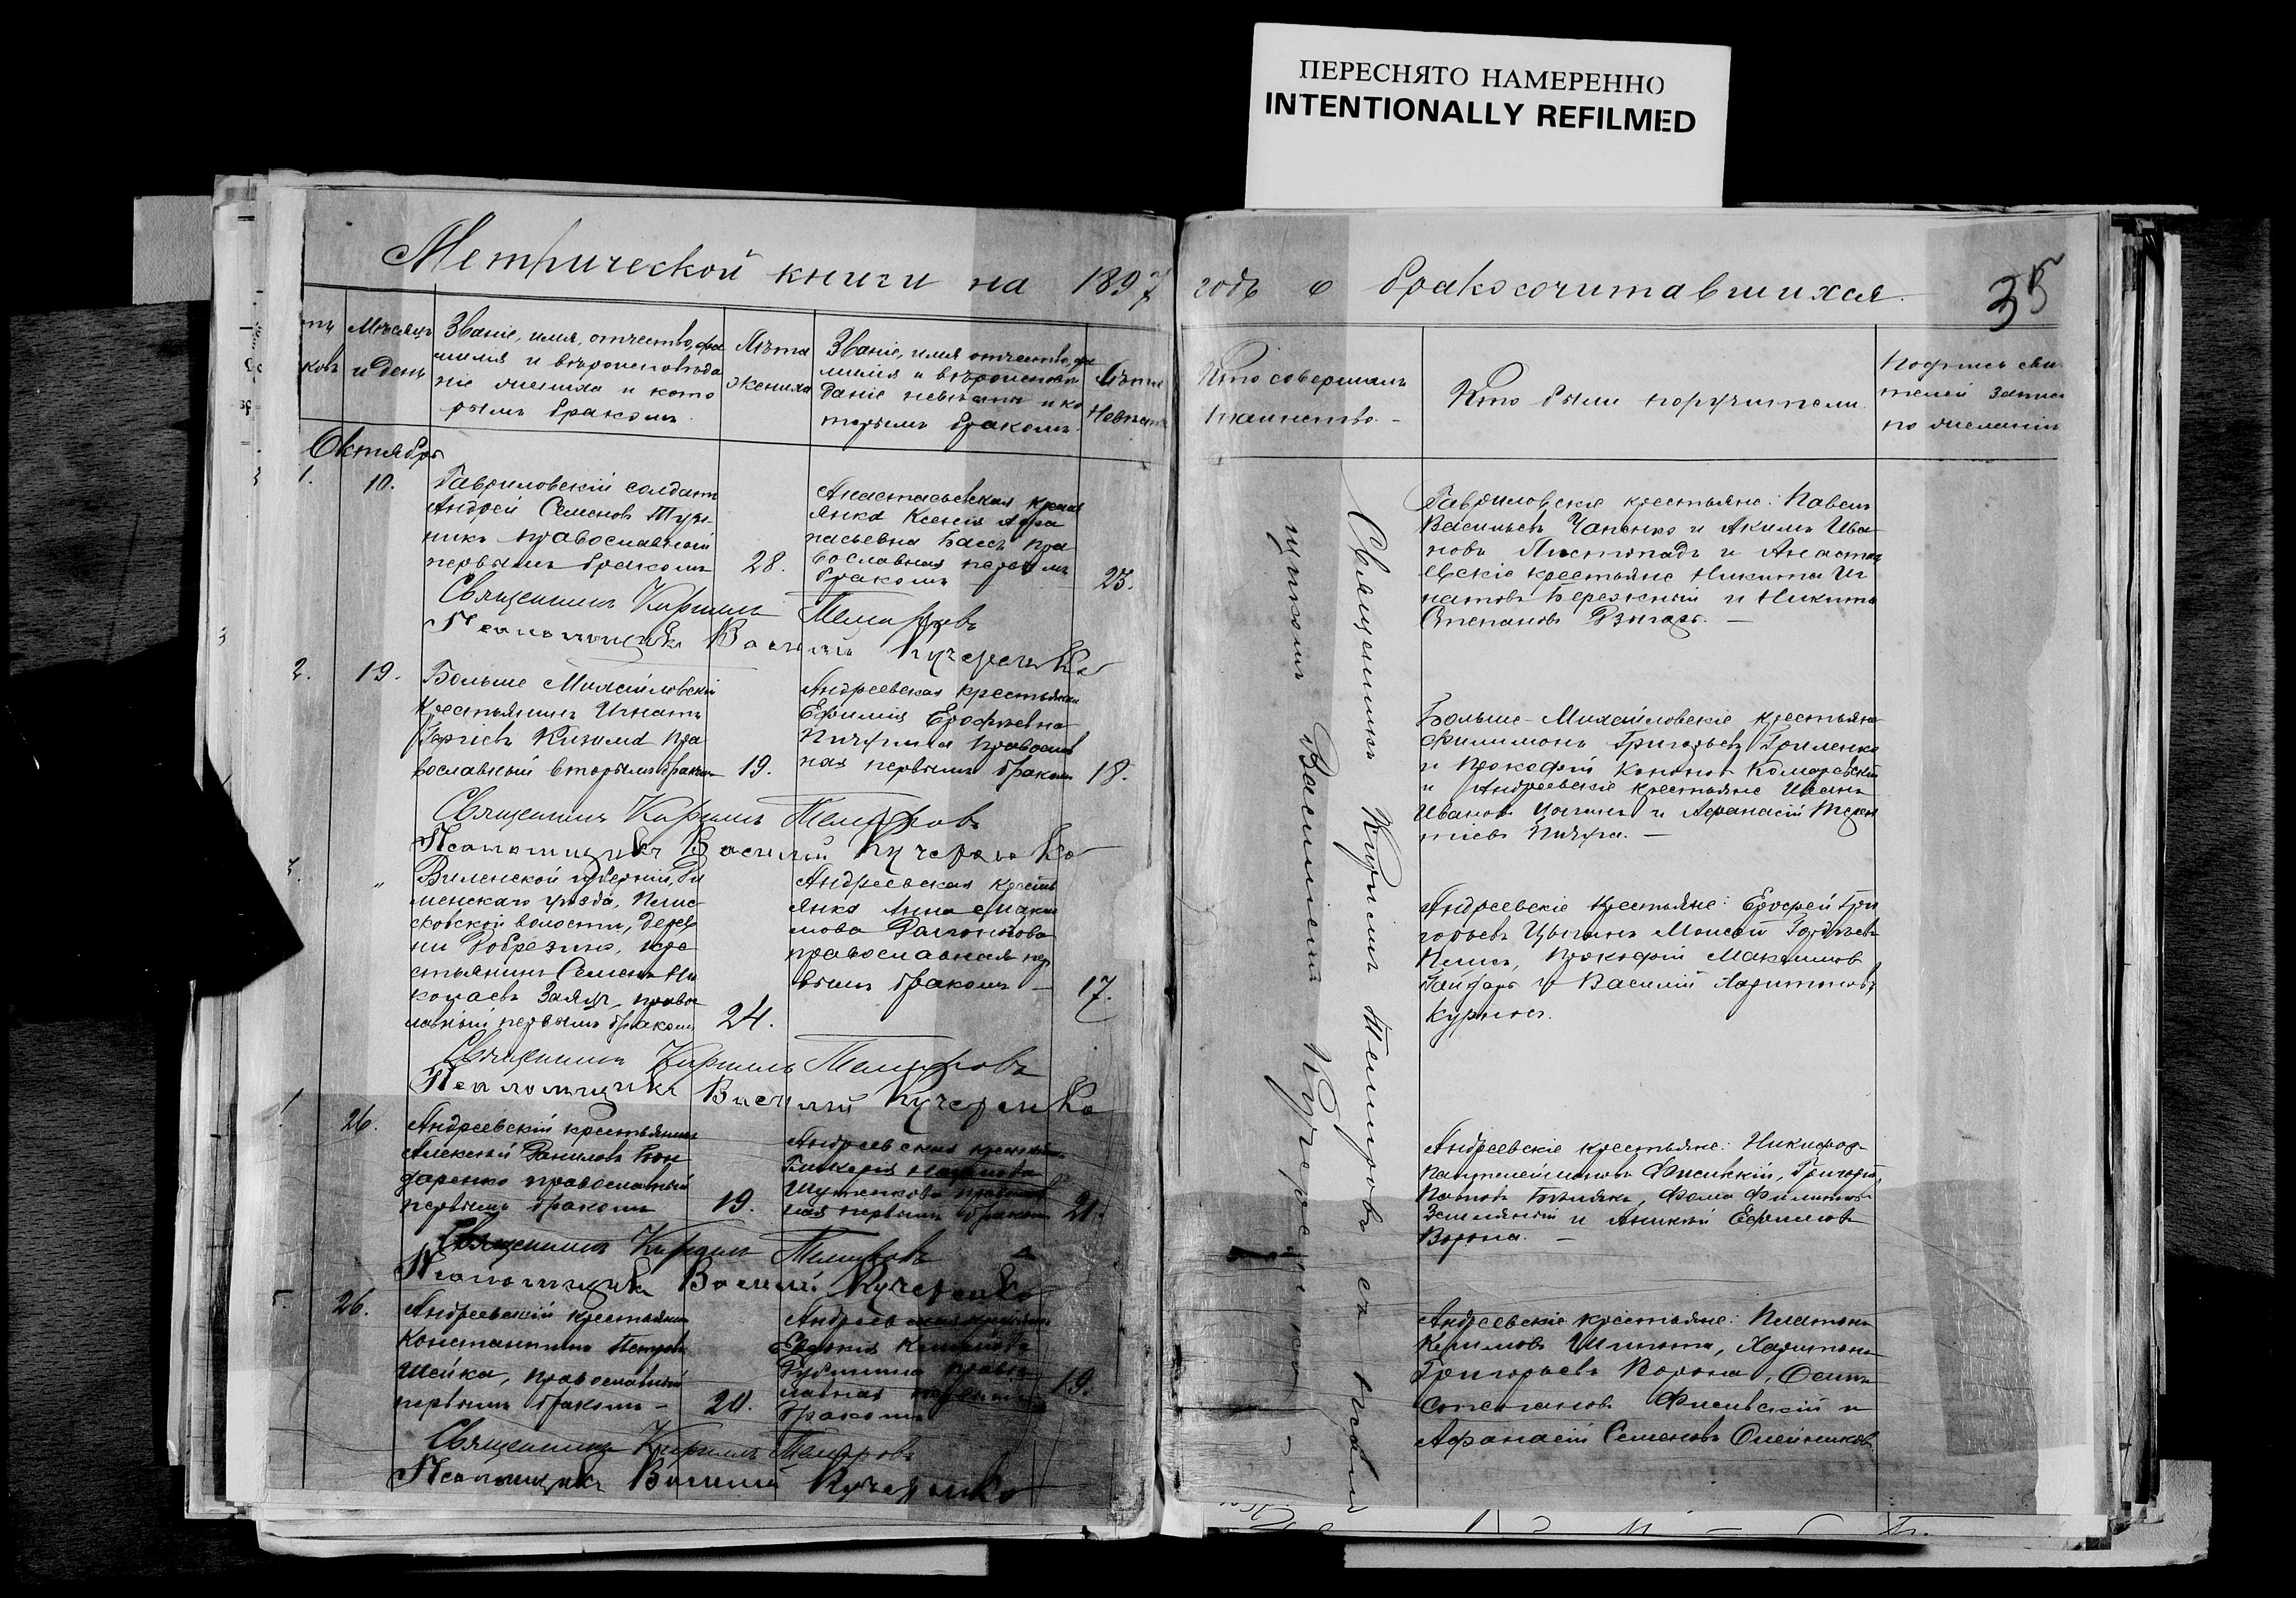 ПЕРЕСНЯТО НАМЕРЕННО
INTENTIONALLY REFILMED
Метрической книги на 1897
годъ о бракосочитавшихся.
35
Мѣсяцъ
и день
Званіе, имя, отчество, фа
милія и вѣроисповѣда
ніе жениха и кото
рымъ бракомъ.
Лѣта
жениха
Званіе, имя отчество, фа
милія и вѣроисповѣ
даніе невѣсты и ко
торымъ бракомъ.
Лѣта
Невѣсты
Кто совершалъ
таинство.
Кто были поручители
Подпись сви
телей запис
по желанію
Октябрь
1.
10.
Гавриловскій солдатъ
Андрей Семеновъ
православный
первымъ бракомъ
28.
Анастасьевская крест
янка Ксенія Афа
насьевна Бассъ пра
вославная первымъ
бракомъ
23.
Гавриловскіе крестьяне: Павелъ
Васильевъ Чапенко и Акимъ Ива
новъ Листопадъ и Анастас
евскіе крестьяне Никита Иг
натовъ Бережный и Никита
Степановъ
Священникъ Кириллъ Темировъ
Псаломщикъ Василій Кучеренко
2.
19.
Больше Михайловскій
крестьянинъ Игнатъ
пра
вославный вторымъ бракомъ
19.
Андреевская крестьянка
Ефимія Ерофѣевна
православ
ная первымъ бракомъ
18.
Больше-Михайловскіе крестьяне
Филимонъ Григорьевъ Гриленко
и Прокофій Кононовъ Комаревскій
и Андреевскіе крестьяне Иванъ
Ивановъ и Афанасій Терен
тіевъ
Священникъ Кириллъ Темировъ
Псаломщикъ Василій Кучеренко
"
Виленской губерніи, Ви
ленскаго уѣзда,
волости, дерев
ни кре
стьянинъ Семенъ Ни
колаевъ Заяцъ, правос
лавный первымъ бракомъ
24.
Андреевская кресть
янка Анна Макси
мова
православная пер
вымъ бракомъ —
17.
Андреевскіе крестьяне: Ерофей Гри
горьевъ Цыганъ Моисей Гордѣевъ
Прокофій Максимовъ
и Василій Харитоновъ
Священникъ Кириллъ Темировъ
Псаломщикъ Василій Кучеренко
26.
Андреевскій крестьянинъ
Алексѣй Даниловъ Бон
даренко православный
первымъ бракомъ
19.
Андреевская крестьянка
Гликерія
ная первымъ бракомъ
21.
Андреевскіе крестьяне: Никифоръ
Пантелеймоновъ Фисивскій, Григорій
Фома Филиповъ
Землянной и Ефимовъ
Ворона. —
Священникъ Кириллъ Темировъ
Псаломщикъ Василій Кучеренко
5.
26.
Андреевскій крестьянинъ
Константинъ Петровъ
Шейка, православный
первымъ бракомъ —
20.
Андреевская крестьянка
Евдокія
правос
лавная первымъ
бракомъ
19.
Андреевскіе крестьяне: Платонъ
Харитонъ
Григорьевъ Ворона, Осипъ
Степановъ Фисивскій и
Афанасій Семеновъ Олейниковъ
Священникъ Кириллъ Темировъ
Псаломщикъ Василій Кучеренко
Священникъ Кириллъ Темировъ съ псалом
щикомъ Василіемъ Кучеренко —